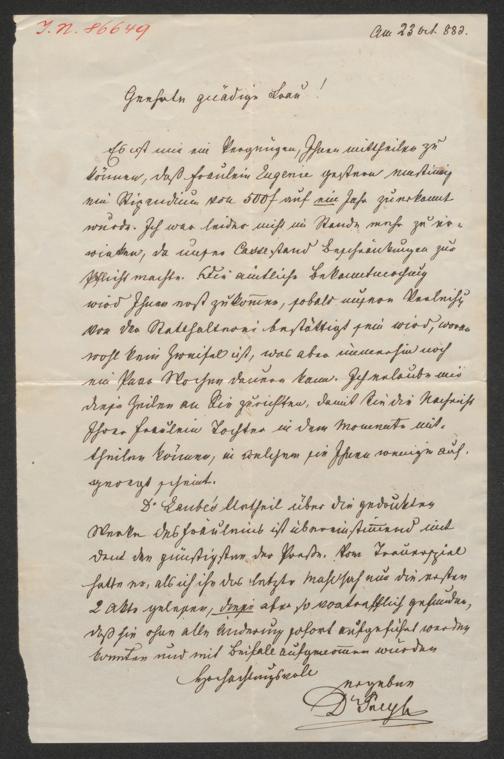 I. N. 86649
Am 23 Oct. 883.
Geehrte gnädige Frau!
Es ist mir ein Vergnügen, Ihnen mittheilen zu
können, daß Fräulein Eugenie gestern
ein Stipendium von 500 f auf ein Jahr zuerkannt
wurde. Ich war leider nicht im Stande mehr zu er-
wirken, da unser Cassestand Beschränkungen zur
Pflicht machte. Die ämtliche Bekanntmachung
wird Ihnen erst zukommen, sobald unsere Verleihg
von der Statthalterei bestättigt sein wird, woran
wohl kein Zweifel ist, was aber immerhin noch
ein Paar Wochen dauern kann. Ich erlaube mir
diese Zeilen an Sie zu richten, damit Sie die Nachricht
Ihrer Fräulein Tochter in dem Momente mit-
theilen können, in welchem sie Ihnen weniger auf-
geregt scheint.
Dr Laube's Urtheil über die gedruckten
Werke des Fräuleins ist übereinstimmend mit
dem der günstigsten der Presse. Vom Trauerspiel
hatte er, als ich ihn das letzte Mahl sah nur die ersten
2 Akte gelesen, diese aber so vortrefflich gefunden,
daß sie ohne alle Änderung sofort aufgeführt werden
könnten und mit Beifall aufgenommen würden
Hochachtungsvoll
ergeben
Dr